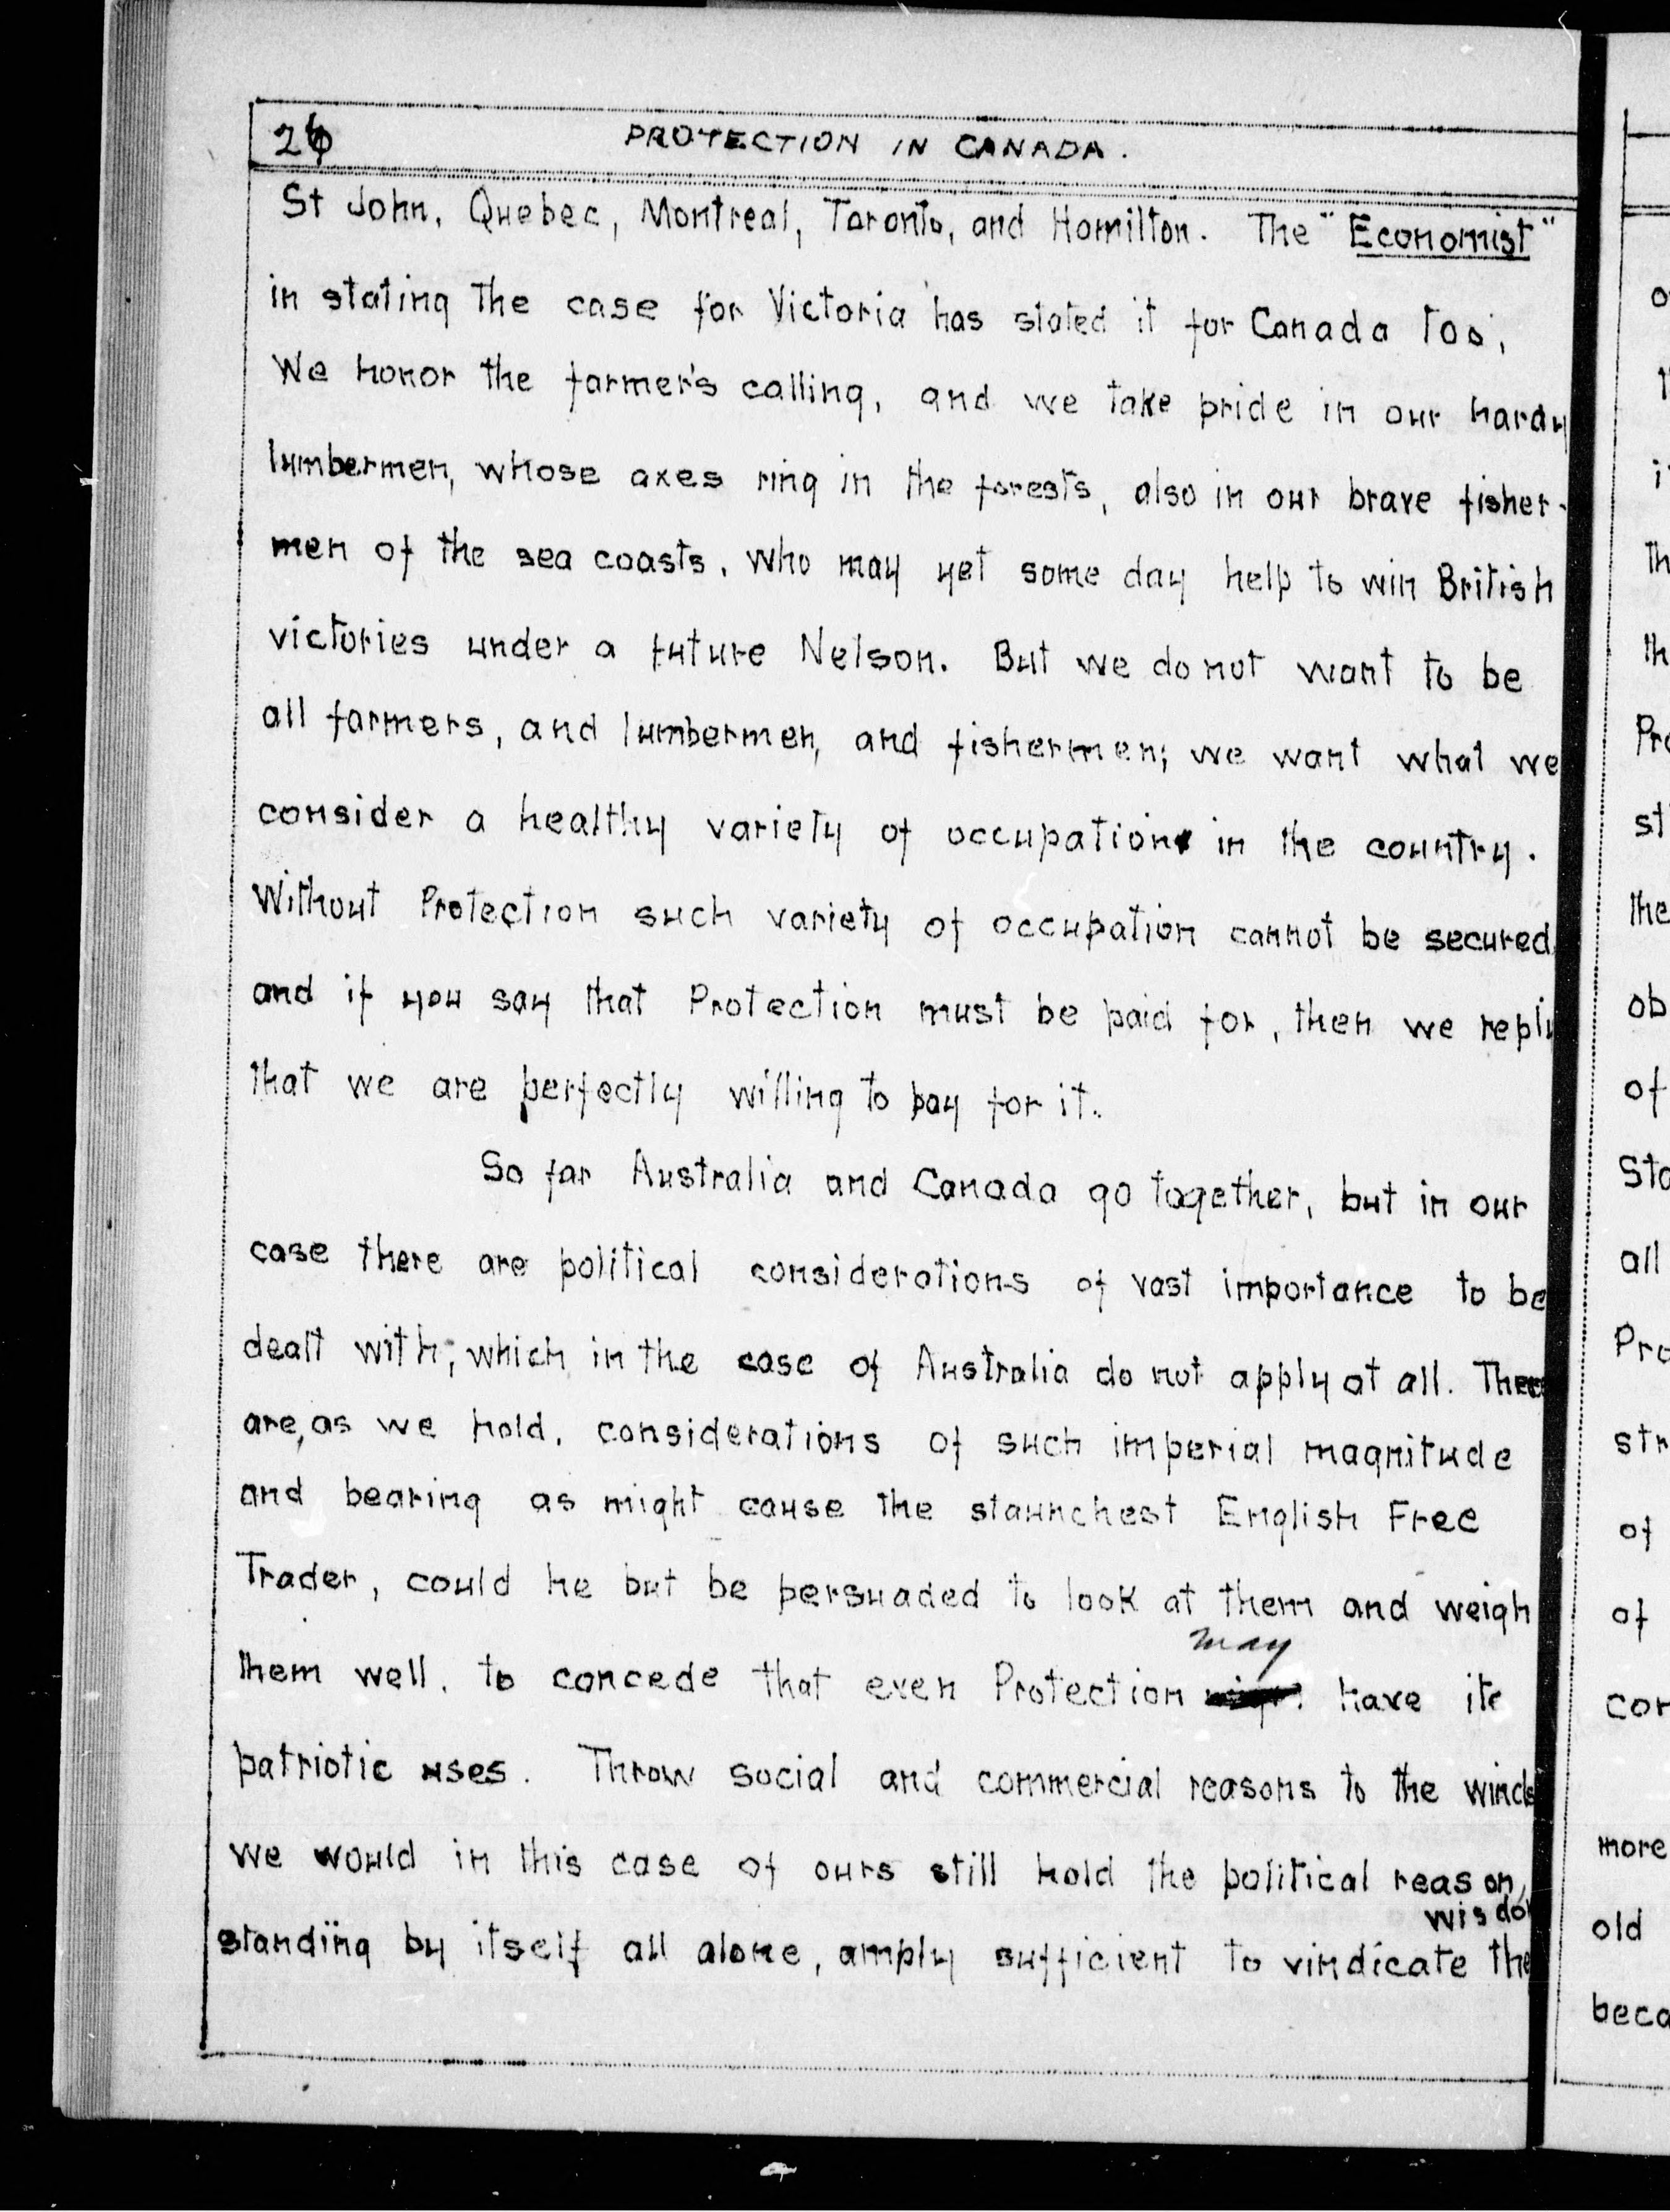 26
PROTECTION IN CANADA.
St John, Quebec, Montreal, Toronto, and Hamilton. The "Economist"
in stating the case for Victoria has stated it for Canada too,
We honor the farmer's calling, and we take pride in our hardy
lumbermen, whose axes ring in the forests, also in our brave fisher-
men of the sea coasts, who may yet some day help to win British
victories under a future Nelson. But we do not want to be
all farmers, and lumbermen, and fishermen; we want what we
consider a healthy variety of occupation in the country.
Without Protection such variety of occupation cannot be secured,
and if you say that Protection must be paid for, then we reply
that we are perfectly willing to pay for it.
So far Australia and Canada go together, but in our
case there are political considerations of vast importance to be
dealt with, which in the case of Australia do not apply at all. There
are, as we hold, considerations of such imperial magnitude
and bearing as might cause the staunchest English Free
Trader, could he but be persuaded to look at them and weigh
them well, to concede that even Protection may have its
patriotic uses. Throw social and commercial reasons to the winds
we would in this case of ours still hold the political reason,
standing by itself all alone, amply sufficient to vindicate the
wisdo
o
i
th
th
Pro
st
the
ob
of
Sta
all
Pro
str
of
of
cor
more
old
beca